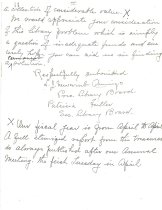 a selection of considerable value. X
We would appreciate your consideration
of this library problem which is simply
a question of inadequate funds and sin-
cerely hope you can aid us in finding
a solution.
Respectfully submitted
Pres. Library Board
Patricia Fuller
Sec. Library Board.
X Our fiscal year is from April to April
A full itemized report from the Treasurer
is always published after our Annual
Meeting the first Tuesday in April.